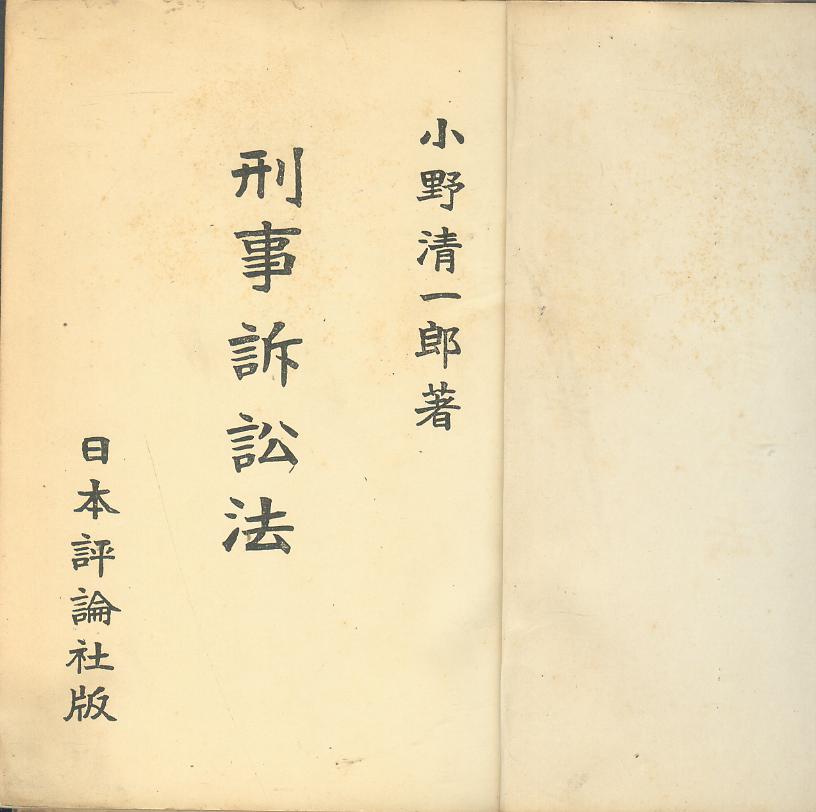 小野清一郎著
刑事訴訟法
日本評論社版